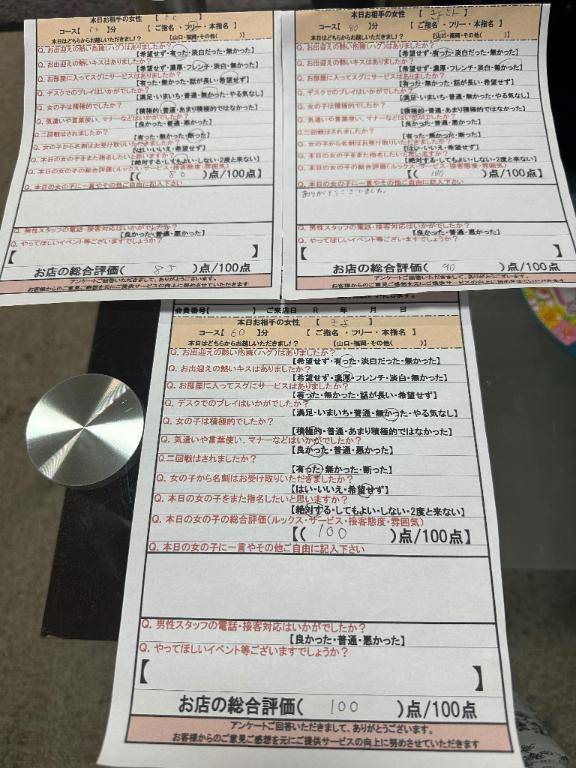 本日お相手の女性 【
コース【 】分 【 ご指名・フリー・本指名 】
本日はどちらからお越しいただきましたか!? 【山口・福岡・その他( )】
Q. お出迎えの熱い抱擁(ハグ)はありましたか?
【希望せず・有った・淡白だった・無かった】
Q. お出迎えの熱いキスはありましたか?
【希望せず・濃厚・フレンチ・淡白・無かった】
Q. お部屋に入ってスグにサービスはありましたか?
【有った・無かった・話が長い・希望せず】
Q. デスクでのプレイはいかがでしたか?
【満足・いまいち・普通・無かった・やる気なし】
Q. 女の子は積極的でしたか?
【積極的・普通・あまり積極的ではなかった】
Q. 気遣いや言葉使い、マナーなどはいかがでしたか?
【良かった・普通・悪かった】
Q. 二回戦はされましたか?
【有った・無かった・断った】
Q. 女の子から名刺はお受け取りいただきましたか?
【はい・いいえ・希望せず】
Q. 本日の女の子をまた指名したいと思いますか?
【絶対する・してもよい・しない・2度と来ない】
Q. 本日の女の子の総合評価(ルックス・サービス・接客態度・雰囲気)
【( 80 )点/100点】
Q. 本日の女の子に一言やその他ご自由に記入下さい
Q. 男性スタッフの電話・接客対応はいかがでしたか?
【良かった・普通・悪かった】
Q. やってほしいイベント等ございますでしょうか?
【 】
お店の総合評価( 85 )点/100点
アンケートご回答いただきまして、ありがとうございます。
お客様からのご意見ご感想を元にご提供サービスの向上に努めさせていただきます
本日お相手の女性 【
コース【 80 】分 【 ご指名・フリー・本指名 】
本日はどちらからお越しいただきましたか!? 【山口・福岡・その他( )】
Q. お出迎えの熱い抱擁(ハグ)はありましたか?
【希望せず・有った・淡白だった・無かった】
Q. お出迎えの熱いキスはありましたか?
【希望せず・濃厚・フレンチ・淡白・無かった】
Q. お部屋に入ってスグにサービスはありましたか?
【有った・無かった・話が長い・希望せず】
Q. デスクでのプレイはいかがでしたか?
【満足・いまいち・普通・無かった・やる気なし】
Q. 女の子は積極的でしたか?
【積極的・普通・あまり積極的ではなかった】
Q. 気遣いや言葉使い、マナーなどはいかがでしたか?
【良かった・普通・悪かった】
Q. 二回戦はされましたか?
【有った・無かった・断った】
Q. 女の子から名刺はお受け取りいただきましたか?
【はい・いいえ・希望せず】
Q. 本日の女の子をまた指名したいと思いますか?
【絶対する・してもよい・しない・2度と来ない】
Q. 本日の女の子の総合評価(ルックス・サービス・接客態度・雰囲気)
【( 100 )点/100点】
Q. 本日の女の子に一言やその他ご自由に記入下さい
ありがとうございました。
Q. 男性スタッフの電話・接客対応はいかがでしたか?
【良かった・普通・悪かった】
Q. やってほしいイベント等ございますでしょうか?
【 】
お店の総合評価( 90 )点/100点
アンケートご回答いただきまして、ありがとうございます。
お客様からのご意見ご感想を元にご提供サービスの向上に努めさせていただきます
会員番号【 】 ご来店日 R 年 月 日
本日お相手の女性 【
コース【 60 】分 【 ご指名・フリー・本指名 】
本日はどちらからお越しいただきましたか!? 【山口・福岡・その他( )】
Q. お出迎えの熱い抱擁(ハグ)はありましたか?
【希望せず・有った・淡白だった・無かった】
Q. お出迎えの熱いキスはありましたか?
【希望せず・濃厚・フレンチ・淡白・無かった】
Q. お部屋に入ってスグにサービスはありましたか?
【有った・無かった・話が長い・希望せず】
Q. デスクでのプレイはいかがでしたか?
【満足・いまいち・普通・無かった・やる気なし】
Q. 女の子は積極的でしたか?
【積極的・普通・あまり積極的ではなかった】
Q. 気遣いや言葉使い、マナーなどはいかがでしたか?
【良かった・普通・悪かった】
Q. 二回戦はされましたか?
【有った・無かった・断った】
Q. 女の子から名刺はお受け取りいただきましたか?
【はい・いいえ・希望せず】
Q. 本日の女の子をまた指名したいと思いますか?
【絶対する・してもよい・しない・2度と来ない】
Q. 本日の女の子の総合評価(ルックス・サービス・接客態度・雰囲気)
【( 100 )点/100点】
Q. 本日の女の子に一言やその他ご自由に記入下さい
Q. 男性スタッフの電話・接客対応はいかがでしたか?
【良かった・普通・悪かった】
Q. やってほしいイベント等ございますでしょうか?
【 】
お店の総合評価( 100 )点/100点
アンケートご回答いただきまして、ありがとうございます。
お客様からのご意見ご感想を元にご提供サービスの向上に努めさせていただきます